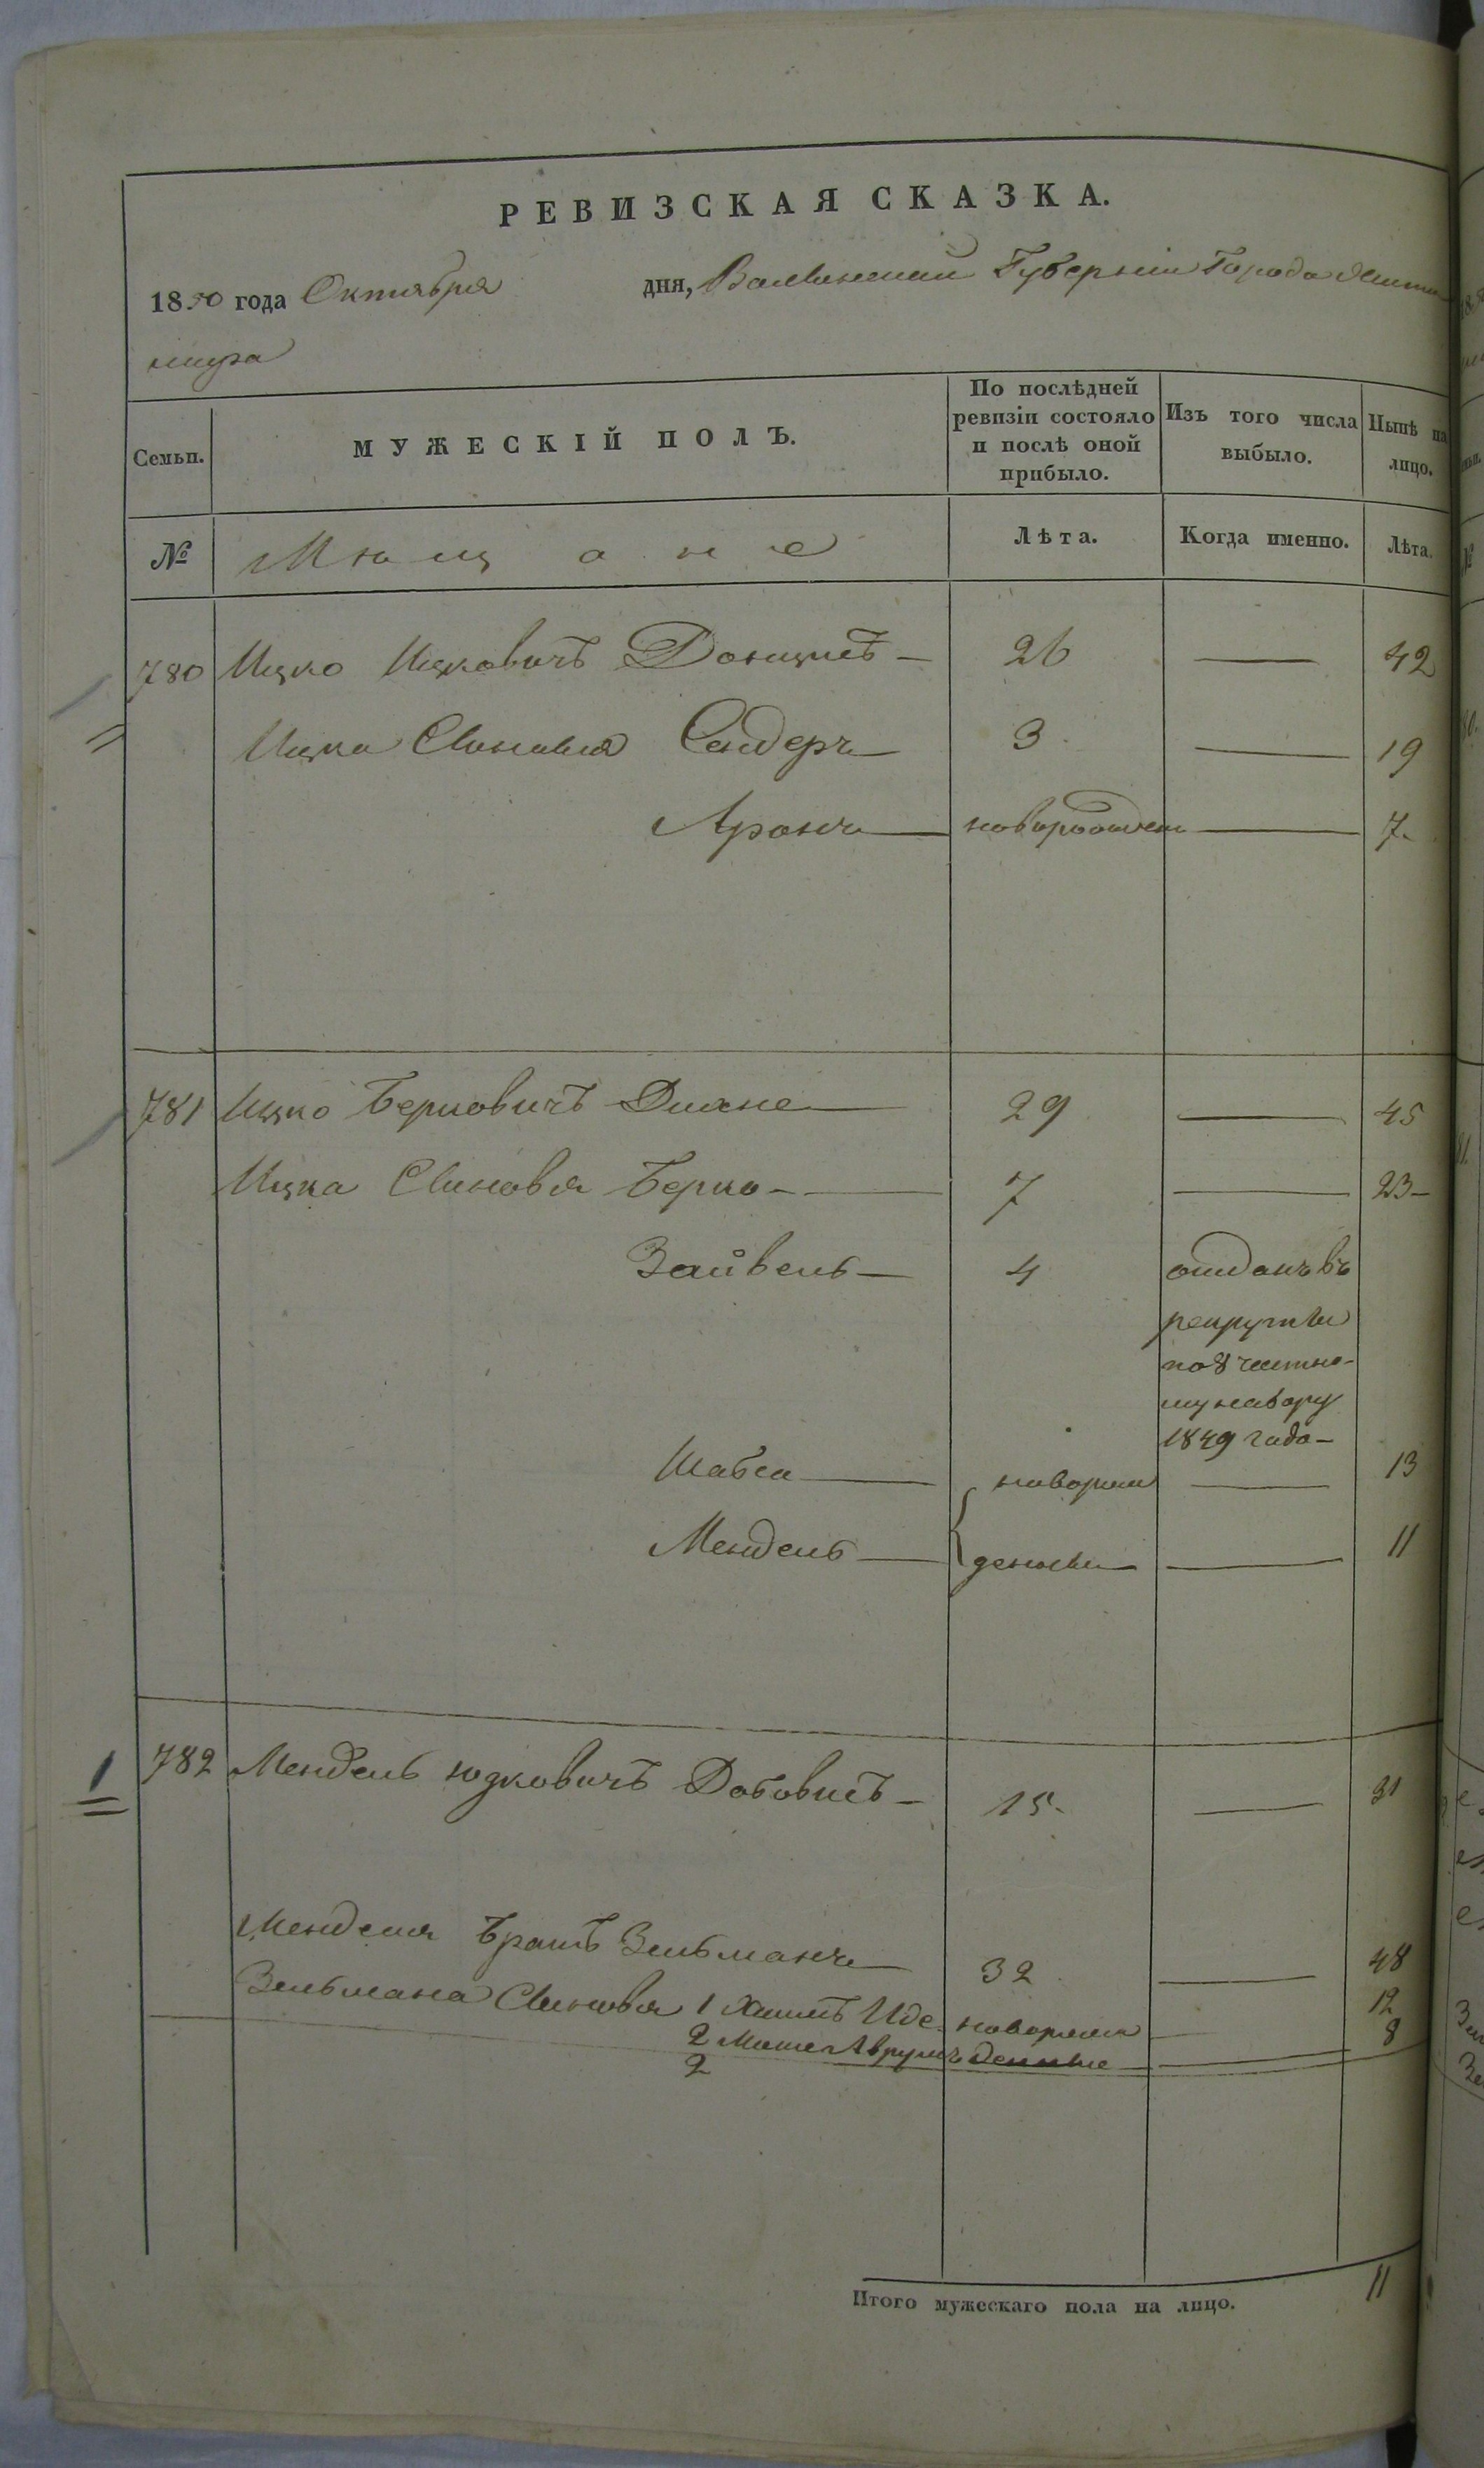 РЕВИЗСКАЯ СКАЗКА.
1850 года Октября дня, Волынской Губерніи Города Жито
мира
Семьи. МУЖЕСКІЙ ПОЛЪ. По послѣдней ревизіи состояло и послѣ оной прибыло. Изъ того числа выбыло. Нынѣ на лицо.
№ Мѣщане Лѣта. Когда именно. Лѣта.
780 Ицко Ицковичъ 26 — 42
Ицка Сыновья Сендеръ — 3 — 19
Аронъ — новорожден — 7
781 Ицко Берковичъ — 29 — 45
Ицка Сыновья Берко — 7 — 23
Зайвель — 4 отданъ въ
рекруты
по 8 частно-
му набору
1849 года —
Шабса — новорож — 13
Мендель — денные — 11
782 Мендель Юдковичъ — 15 — 31
Менделя братъ Зельманъ — 32 — 48
Зельмана Сыновья 1 Хаимъ новорож — 12
2 Мошко Аврумъ денные — 8
2
Итого мужескаго пола на лицо. 11